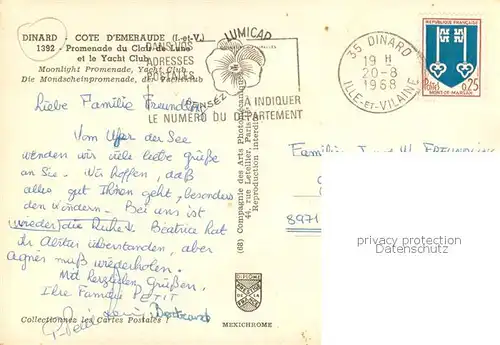 DINARD - COTE D'EMERAUDE (I.-et-V.)
1392 - Promenade du Clair de Lune
et le Yacht Club
Moonlight Promenade, Yacht Club
Die Mondscheinpromenade, der Yachtclub
LUMICAP
DANS VOS
ADRESSES
POSTALES
PENSEZ
À INDIQUER
LE NUMÉRO DU DÉPARTEMENT
35 DINARD
19 H
20-8
1968
ILLE-ET-VILAINE
REPUBLIQUE FRANÇAISE
POSTES
0,25
MONT-DE-MARSAN
Liebe Familie Freundling
Vom Ufer der See
wenden wir viele liebe grüße
an Sie. Wir hoffen, daß
alles gut Ihnen geht, besonders
den Kindern. Bei uns ist
wieder die Ruhe. Béatrice hat
ihr Abitur überstanden, aber
Agnès muß wiederholen.
Mit herzlichen Grüßen.
Ihre Famille PETIT
Bertrand
Collectionnez les Cartes Postales !
(68) Compagnie des Arts Photomécaniques
44, rue Letellier, Paris
Reproduction interdite
DIPLOME
MEXICHROME
Familie
8971
privacy protection
Datenschutz